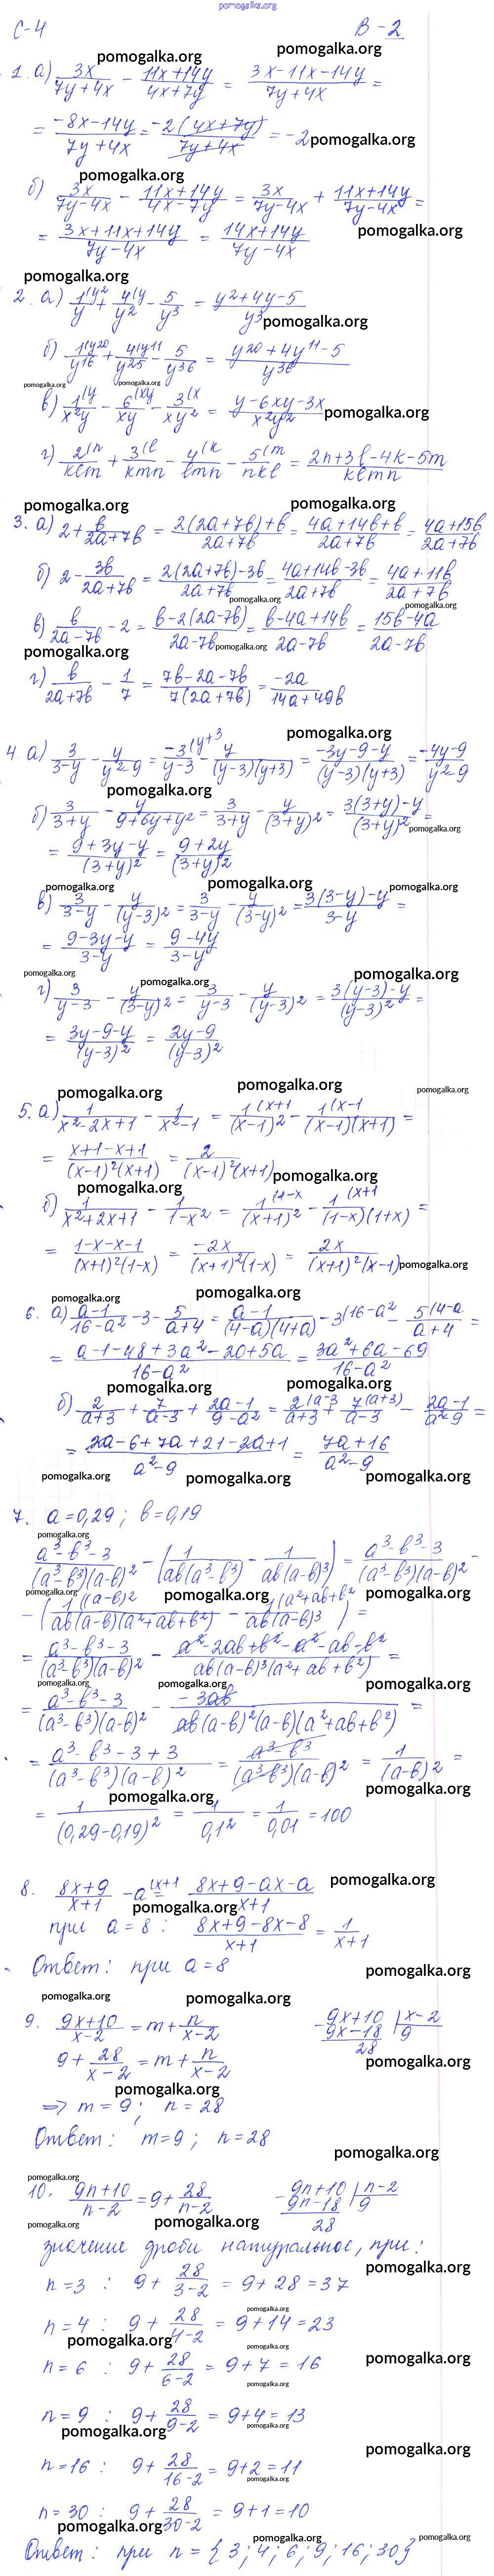 pomogalka.org
С-4 В-2
pomogalka.org pomogalka.org
1. а) 3x/(7y+4x) - (11x+14y)/(4x+7y) = (3x-11x-14y)/(7y+4x) =
= (-8x-14y)/(7y+4x) = -2(4x+7y)/(7y+4x) = -2 pomogalka.org
pomogalka.org
б) 3x/(7y-4x) - (11x+14y)/(4x-7y) = 3x/(7y-4x) + (11x+14y)/(7y-4x) =
= (3x+11x+14y)/(7y-4x) = (14x+14y)/(7y-4x) pomogalka.org
pomogalka.org
2. а) 1(y²/y + 4(y/y² - 5/y³ = (y²+4y-5)/y³ pomogalka.org
б) 1(y²⁰/y¹⁶ + 4(y¹¹/y²⁵ - 5/y³⁶ = (y²⁰+4y¹¹-5)/y³⁶
pomogalka.org pomogalka.org
в) 1(y/x²y - 6(xy/xy - 3(x/xy² = (y-6xy-3x)/x²y² pomogalka.org
г) 2(n/kℓm + 3(ℓ/kmn - 4(k/ℓmn - 5(m/nkℓ = (2n+3ℓ-4k-5m)/kℓmn
pomogalka.org pomogalka.org
3. а) 2 + в/(2a+7в) = (2(2a+7в)+в)/(2a+7в) = (4a+14в+в)/(2a+7в) = (4a+15в)/(2a+7в)
б) 2 - 3в/(2a+7в) = (2(2a+7в)-3в)/(2a+7в) = (4a+14в-3в)/(2a+7в) = (4a+11в)/(2a+7в)
pomogalka.org pomogalka.org
в) в/(2a-7в) - 2 = (в-2(2a-7в))/(2a-7в) = (в-4a+14в)/(2a-7в) = (15в-4a)/(2a-7в)
pomogalka.org pomogalka.org
г) в/(2a+7в) - 1/7 = (7в-2a-7в)/(7(2a+7в)) = -2a/(14a+49в)
pomogalka.org
4. а) 3/(3-y) - y/(y²-9) = -3(y+3/(y-3) - y/((y-3)(y+3)) = (-3y-9-y)/((y-3)(y+3)) = (-4y-9)/(y²-9)
pomogalka.org
б) 3/(3+y) - y/(9+6y+y²) = 3/(3+y) - y/(3+y)² = (3(3+y)-y)/(3+y)² =
pomogalka.org
= (9+3y-y)/(3+y)² = (9+2y)/(3+y)²
pomogalka.org pomogalka.org pomogalka.org
в) 3/(3-y) - y/(y-3)² = 3/(3-y) - y/(3-y)² = (3(3-y)-y)/(3-y) =
= (9-3y-y)/(3-y) = (9-4y)/(3-y)
pomogalka.org pomogalka.org pomogalka.org
г) 3/(y-3) - y/(3-y)² = 3/(y-3) - y/(y-3)² = (3(y-3)-y)/(y-3)² =
= (3y-9-y)/(y-3)² = (2y-9)/(y-3)²
pomogalka.org pomogalka.org pomogalka.org
5. а) 1/(x²-2x+1) - 1/(x²-1) = 1(x+1/(x-1)² - 1(x-1/((x-1)(x+1)) =
= (x+1-x+1)/((x-1)²(x+1)) = 2/((x-1)²(x+1)) pomogalka.org
pomogalka.org
б) 1/(x²+2x+1) - 1/(1-x²) = 1(1-x/(x+1)² - 1(x+1/((1-x)(1+x)) =
= (1-x-x-1)/((x+1)²(1-x)) = -2x/((x+1)²(1-x)) = 2x/((x+1)²(x-1)) pomogalka.org
pomogalka.org pomogalka.org
6. а) (a-1)/(16-a²) - 3 - 5/(a+4) = (a-1)/((4-a)(4+a)) - 3(16-a² - 5(4-a/(a+4) =
= (a-1-48+3a²-20+5a)/(16-a²) = (3a²+6a-69)/(16-a²)
pomogalka.org pomogalka.org
б) 2/(a+3) + 7/(a-3) + (2a-1)/(9-a²) = 2(a-3/(a+3) + 7(a+3)/(a-3) - (2a-1)/(a²-9) =
= (2a-6+7a+21-2a+1)/(a²-9) = (7a+16)/(a²-9)
pomogalka.org pomogalka.org pomogalka.org
7. a=0,29; в=0,19
pomogalka.org
(a³-в³-3)/((a³-в³)(a-в)²) - (1/(aв(a³-в³)) - 1/(aв(a-в)³)) = (a³-в³-3)/((a³-в³)(a-в)²) -
pomogalka.org pomogalka.org pomogalka.org
- (1((a-в)²/(aв(a-в)(a²+aв+в²)) - 1(a²+aв+в²/(aв(a-в)³)) =
= (a³-в³-3)/((a³-в³)(a-в)²) - (a²-2aв+в²-a²-aв-в²)/(aв(a-в)³(a²+aв+в²)) =
pomogalka.org pomogalka.org pomogalka.org
= (a³-в³-3)/((a³-в³)(a-в)²) - (-3aв)/(aв(a-в)²(a-в)(a²+aв+в²)) =
= (a³-в³-3+3)/((a³-в³)(a-в)²) = (a³-в³)/((a³-в³)(a-в)²) = 1/(a-в)² =
pomogalka.org pomogalka.org
= 1/(0,29-0,19)² = 1/0,1² = 1/0,01 = 100
8. (8x+9)/(x+1) - a(x+1 = (8x+9-ax-a)/(x+1) pomogalka.org
pomogalka.org
при a=8 : (8x+9-8x-8)/(x+1) = 1/(x+1)
Ответ: при a=8 pomogalka.org
pomogalka.org pomogalka.org
9. (9x+10)/(x-2) = m + n/(x-2) -9x+10 | x-2
9x-18 | 9
9 + 28/(x-2) = m + n/(x-2) 28
pomogalka.org
pomogalka.org
=> m=9; n=28
Ответ: m=9; n=28
pomogalka.org
pomogalka.org
10. (9n+10)/(n-2) = 9 + 28/(n-2) -9n+10 | n-2
9n-18 | 9
pomogalka.org pomogalka.org 28
значение дроби натуральное, при:
pomogalka.org
n=3 : 9 + 28/(3-2) = 9+28 = 37
pomogalka.org
n=4 : 9 + 28/(4-2) = 9+14 = 23
pomogalka.org pomogalka.org
n=6 : 9 + 28/(6-2) = 9+7 = 16 pomogalka.org
pomogalka.org
n=9 : 9 + 28/(9-2) = 9+4 = 13
pomogalka.org pomogalka.org
pomogalka.org
n=16 : 9 + 28/(16-2) = 9+2 = 11
pomogalka.org
n=30 : 9 + 28/(30-2) = 9+1 = 10
pomogalka.org pomogalka.org
pomogalka.org pomogalka.org
Ответ: при n = {3; 4; 6; 9; 16; 30}